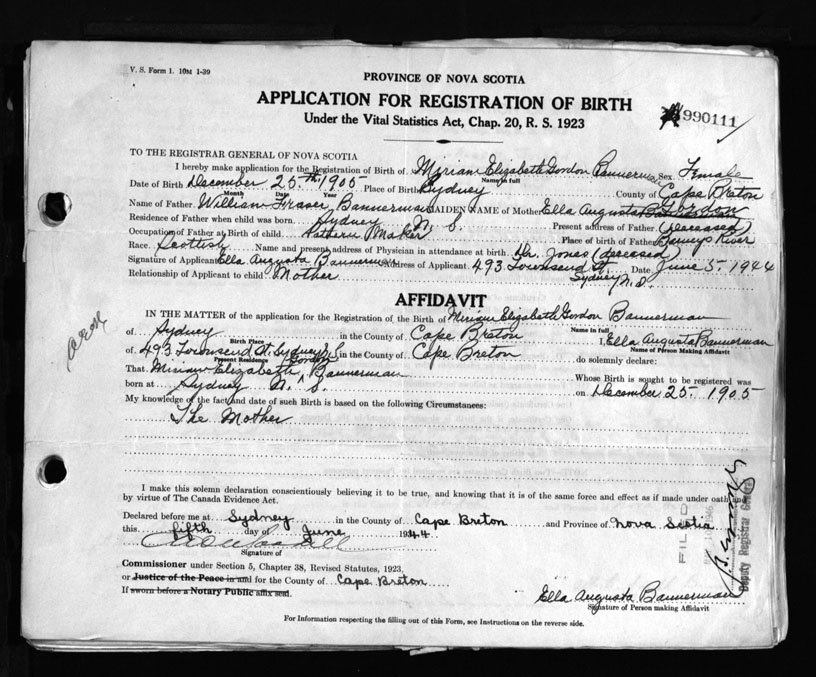 V. S. Form 1. 10M 1-39
PROVINCE OF NOVA SCOTIA
APPLICATION FOR REGISTRATION OF BIRTH
990111
Under the Vital Statistics Act, Chap. 20, R. S. 1923
TO THE REGISTRAR GENERAL OF NOVA SCOTIA
I hereby make application for the Registration of Birth of Miriam Elizabeth Gordon Bannerman Sex Female
Name in full
Date of Birth December 25th 1905 Place of Birth Sydney County of Cape Breton
Month Date Year
Name of Father William Fraser Bannerman MAIDEN NAME of Mother Ella Augusta
Residence of Father when child was born Sydney N. S. Present address of Father (deceased)
Occupation of Father at Birth of child Pattern Maker Place of birth of Father Barneys River
Race Scottish Name and present address of Physician in attendance at birth Dr. Jones (deceased)
Signature of Applicant Ella Augusta Bannerman Address of Applicant 493 Townsend St. Date June 5. 1944
Relationship of Applicant to child Mother Sydney N.S.
AFFIDAVIT
IN THE MATTER of the application for the Registration, of the Birth of Miriam Elizabeth Gordon Bannerman
Name in full
of Sydney in the County of Cape Breton I, Ella Augusta Bannerman
Birth Place Name of Person Making Affidavit
of 493 Townsend St. Sydney N.S. in the County of Cape Breton do solemnly declare:
Present Residence
Gordon
That Miriam Elizabeth Bannerman Whose Birth is sought to be registered was
born at Sydney N. S. on December 25. 1905
My knowledge of the fact and date of such Birth is based on the following Circumstances:
The Mother
I make this solemn declaration conscientiously believing it to be true, and knowing that it is of the same force and effect as if made under oath and
by virtue of The Canada Evidence Act.
Declared before me at Sydney in the County of Cape Breton and Province of Nova Scotia
this fifth day of June 1944
Signature of
Commissioner under Section 5, Chapter 38, Revised Statutes, 1923,
or Justice of the Peace in and for the County of Cape Breton
If sworn before a Notary Public affix seal.
Ella Augusta Bannerman
Signature of Person making Affidavit
For Information respecting the filling out of this Form, see Instructions on the reverse side.
FILED
Deputy Registrar General